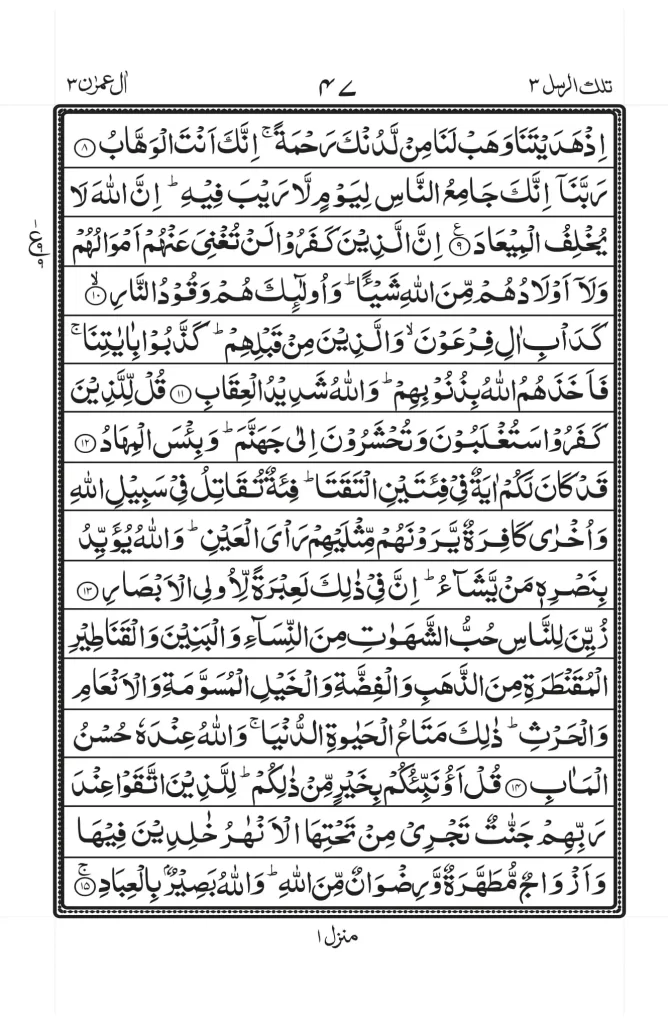 تلك الرسل ٣
٤٧
اٰل عمرٰن ٣
اِذْ هَدَيْتَنَا وَهَبْ لَنَا مِنْ لَّدُنْكَ رَحْمَةً ۚ اِنَّكَ اَنْتَ الْوَهَّابُ ۝۸
رَبَّنَاۤ اِنَّكَ جَامِعُ النَّاسِ لِيَوْمٍ لَّا رَيْبَ فِيْهِ ؕ اِنَّ اللّٰهَ لَا
يُخْلِفُ الْمِيْعَادَ ۝۹ اِنَّ الَّذِيْنَ كَفَرُوْا لَنْ تُغْنِىَ عَنْهُمْ اَمْوَالُهُمْ
ع
۹
۹
وَلَاۤ اَوْلَادُهُمْ مِّنَ اللّٰهِ شَيْـًٔا ؕ وَاُولٰٓئِكَ هُمْ وَقُوْدُ النَّارِ ۝۱۰ۙ
كَدَاْبِ اٰلِ فِرْعَوْنَ ۙ وَالَّذِيْنَ مِنْ قَبْلِهِمْ ؕ كَذَّبُوْا بِاٰيٰتِنَا ۚ
فَاَخَذَهُمُ اللّٰهُ بِذُنُوْبِهِمْ ؕ وَاللّٰهُ شَدِيْدُ الْعِقَابِ ۝۱۱ قُلْ لِّلَّذِيْنَ
كَفَرُوْا سَتُغْلَبُوْنَ وَتُحْشَرُوْنَ اِلٰى جَهَنَّمَ ؕ وَبِئْسَ الْمِهَادُ ۝۱۲
قَدْ كَانَ لَكُمْ اٰيَةٌ فِىْ فِئَتَيْنِ الْتَقَتَا ؕ فِئَةٌ تُقَاتِلُ فِىْ سَبِيْلِ اللّٰهِ
وَاُخْرٰى كَافِرَةٌ يَّرَوْنَهُمْ مِّثْلَيْهِمْ رَاْىَ الْعَيْنِ ؕ وَاللّٰهُ يُؤَيِّدُ
بِنَصْرِهٖ مَنْ يَّشَآءُ ؕ اِنَّ فِىْ ذٰلِكَ لَعِبْرَةً لِّاُولِى الْاَبْصَارِ ۝۱۳
زُيِّنَ لِلنَّاسِ حُبُّ الشَّهَوٰتِ مِنَ النِّسَآءِ وَالْبَنِيْنَ وَالْقَنَاطِيْرِ
الْمُقَنْطَرَةِ مِنَ الذَّهَبِ وَالْفِضَّةِ وَالْخَيْلِ الْمُسَوَّمَةِ وَالْاَنْعَامِ
وَالْحَرْثِ ؕ ذٰلِكَ مَتَاعُ الْحَيٰوةِ الدُّنْيَا ۚ وَاللّٰهُ عِنْدَهٗ حُسْنُ
الْمَاٰبِ ۝۱۴ قُلْ اَؤُنَبِّئُكُمْ بِخَيْرٍ مِّنْ ذٰلِكُمْ ؕ لِلَّذِيْنَ اتَّقَوْا عِنْدَ
رَبِّهِمْ جَنّٰتٌ تَجْرِىْ مِنْ تَحْتِهَا الْاَنْهٰرُ خٰلِدِيْنَ فِيْهَا
وَاَزْوَاجٌ مُّطَهَّرَةٌ وَّرِضْوَانٌ مِّنَ اللّٰهِ ؕ وَاللّٰهُ بَصِيْرٌۢ بِالْعِبَادِ ۝۱۵ۚ
منزل ۱